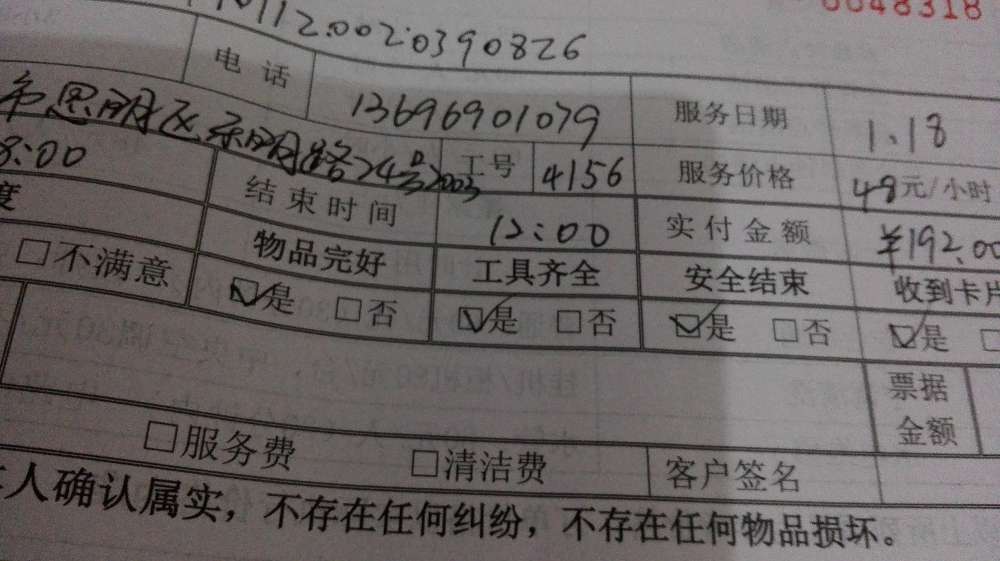 0048318
112.002.0390826
电话 13696901079 服务日期 1.18
市思明区 路24号2003 工号 4156 服务价格 49元/小时
8:00 结束时间 12:00 实付金额 ¥192.00
度 物品完好 工具齐全 安全结束 收到卡片
□不满意 ☑是 □否 ☑是 □否 ☑是 □否 ☑是 □
票据金额
□服务费 □清洁费 客户签名
人确认属实，不存在任何纠纷，不存在任何物品损坏。